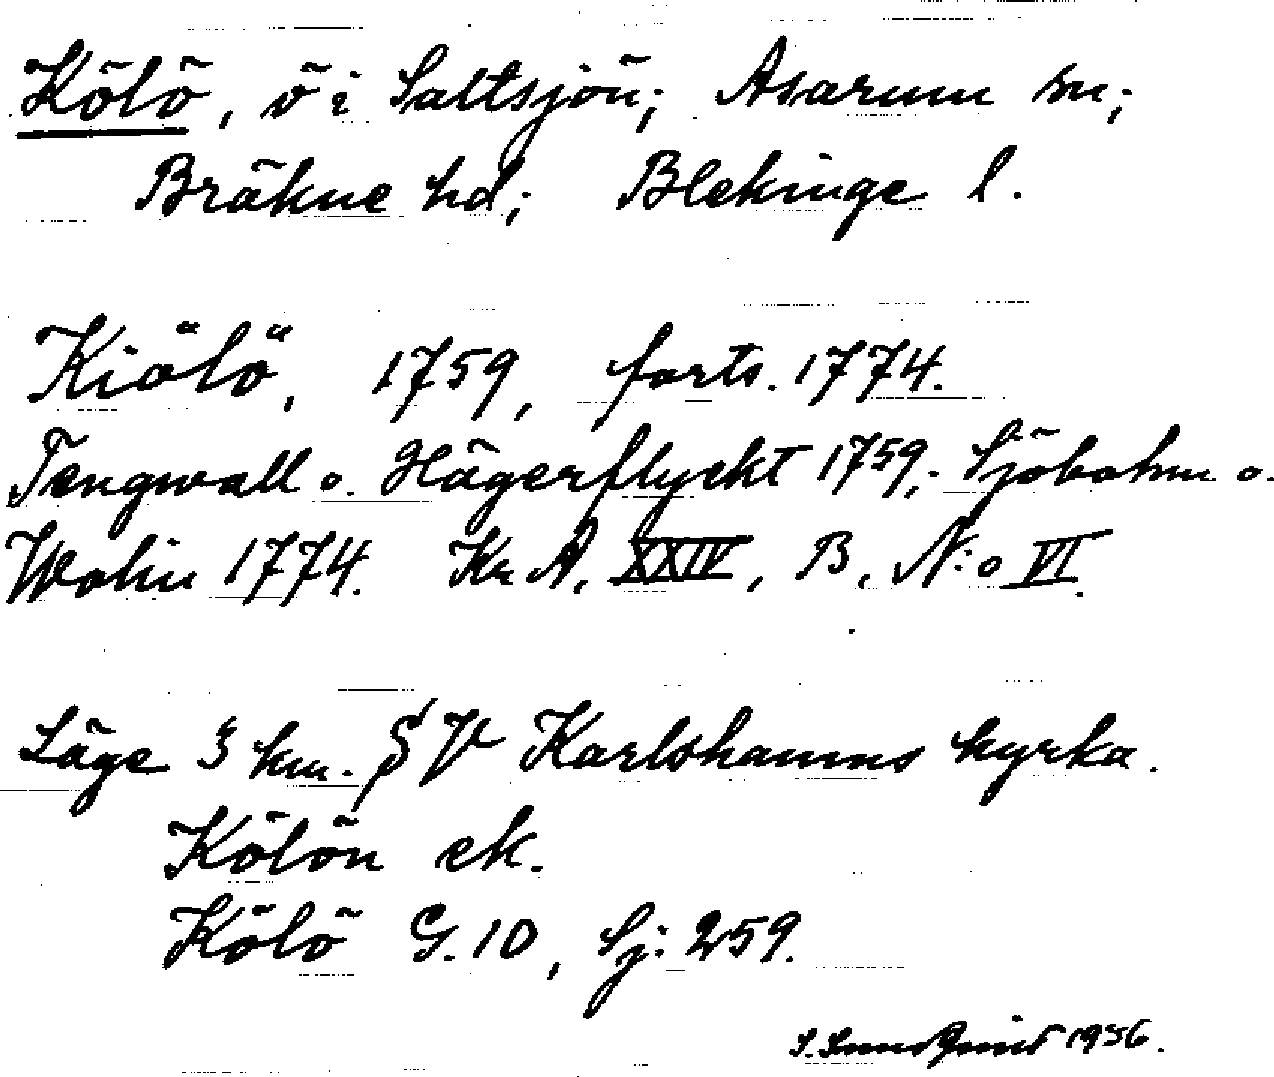 Kölö, ö i Saltsjön; Asarum sn;
Bräkne hd; Blekinge l.
Kiölö, 1759, forts. 1774.
Tengwall o. Hägerflyckt 1759; Sjöbohm o.
Wohin 1774. Kr A. XXIV, B, N:o VI.
Läge 3 km. S V Karlshamns kyrka.
Kölön ek.
Kölö G. 10, Sj: 259.
S. 1956.